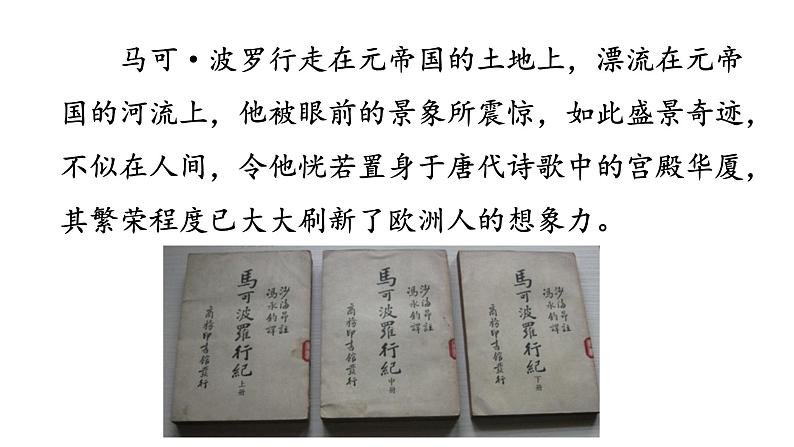 马可·波罗行走在元帝国的土地上，漂流在元帝
国的河流上，他被眼前的景象所震惊，如此盛景奇迹，
不似在人间，令他恍若置身于唐代诗歌中的宫殿华厦，
其繁荣程度已大大刷新了欧洲人的想象力。
沙海昂註
馮承鈞譯
馬可波羅行紀 上册
商務印書館發行
沙海昂註
馮承鈞譯
馬可波羅行紀 中册
商務印書館發行
沙海昂註
馮承鈞譯
馬可波羅行紀 下册
商務印書館發行